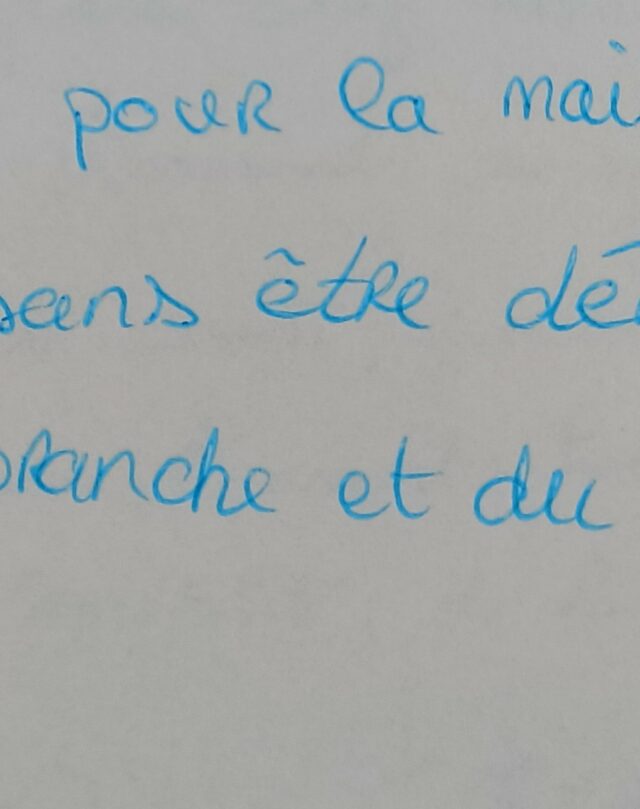 pour la mai
sans être dé
branche et du